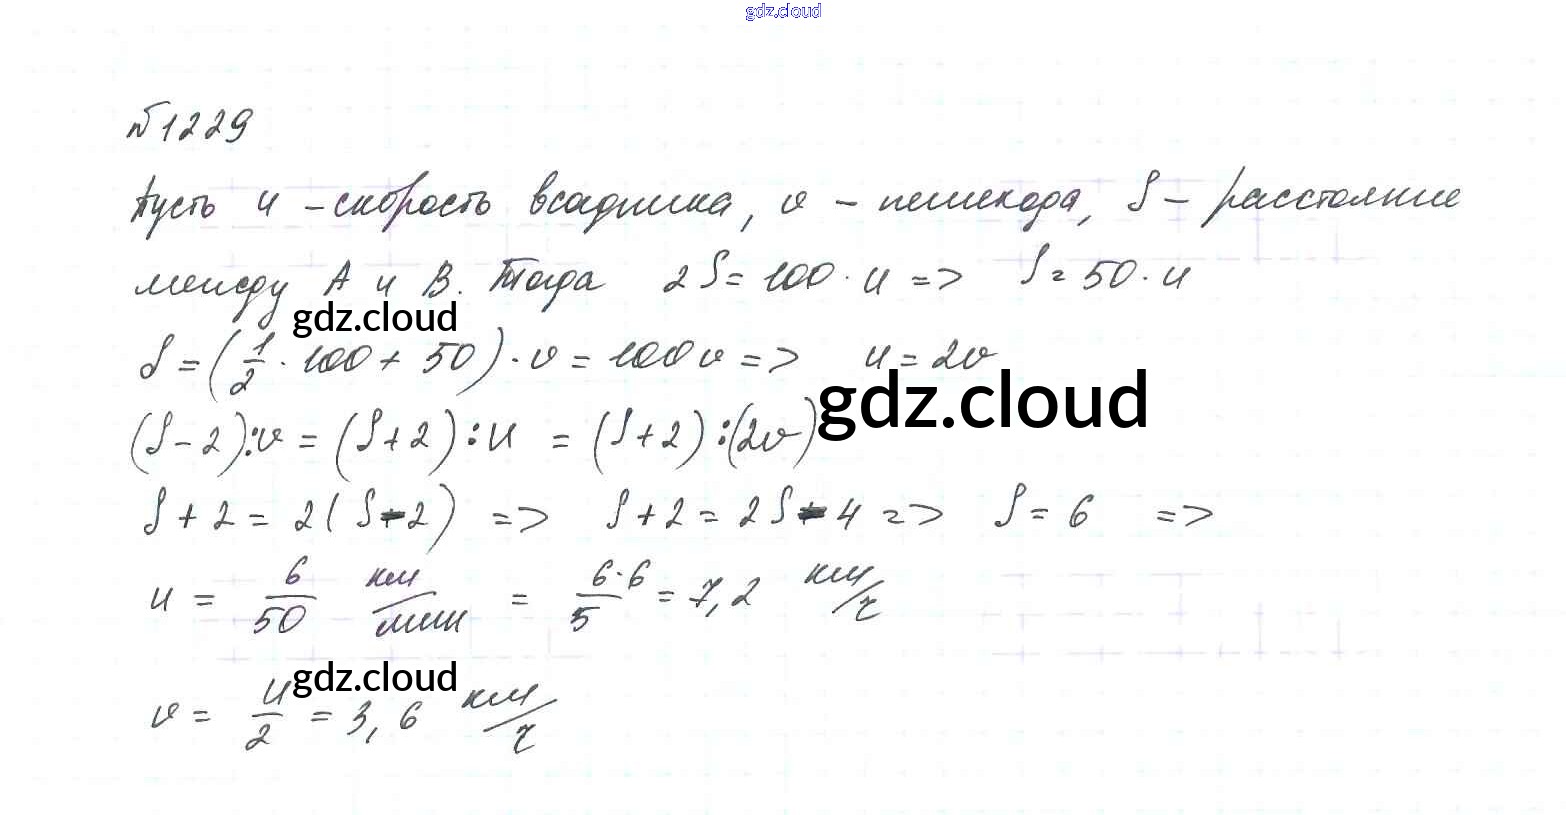 gdz.cloud
№1229
Пусть u – скорость всадника, v – пешехода, S – расстояние
между A и B. Тогда 2S = 100 · u => S = 50 · u
gdz.cloud
S = (1/2 · 100 + 50) · v = 100v => u = 2v
gdz.cloud
(S – 2) : v = (S + 2) : u = (S + 2) : (2v)
S + 2 = 2(S – 2) => S + 2 = 2S – 4 => S = 6 =>
u = 6/50 км/мин = 6·6/5 = 7,2 км/ч
gdz.cloud
v = u/2 = 3,6 км/ч